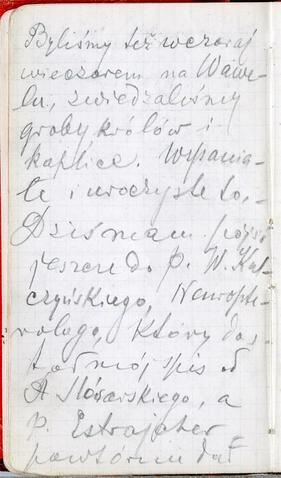 Byliśmy też wczoraj
wieczorem na Wawe-
lu, zwiedzaliśmy
groby królów i
kaplice. Wspania-
łe i uroczyste to.-
Dziś mam pójść
jeszcze do p. W. Kul-
czyńskiego, Neuropte-
rologa, który dos-
tał mój spis od
A Ślósarskiego, a
p. Estrajcher
powtórnie dał